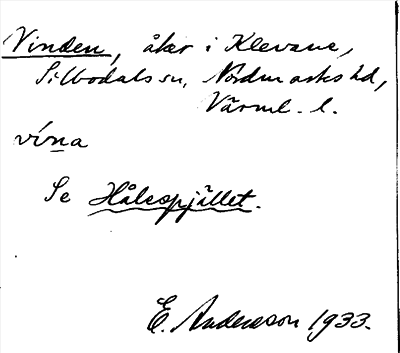 Vinden, åker i Klevane,
Silbodals sn, Nordmarks hd,
Värml. l.
vína
Se Hålespjället.
E. Andersson 1933.